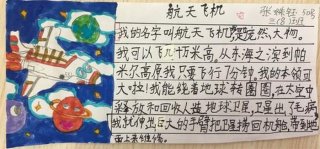 航天飞机
张 钰 50号
三(8)班
我的名字叫航天飞机,是庞然大物。
我可以飞几十万米高,从东海之滨到帕
米尔高原我只要飞行7分钟,我的本领可
大啦!我能绕着地球转圈圈,在太空中
释放和回收人造地球卫星,卫星出了毛病
我就伸出巨大的手臂把卫星捞回机舱,带到地
面上来维修。